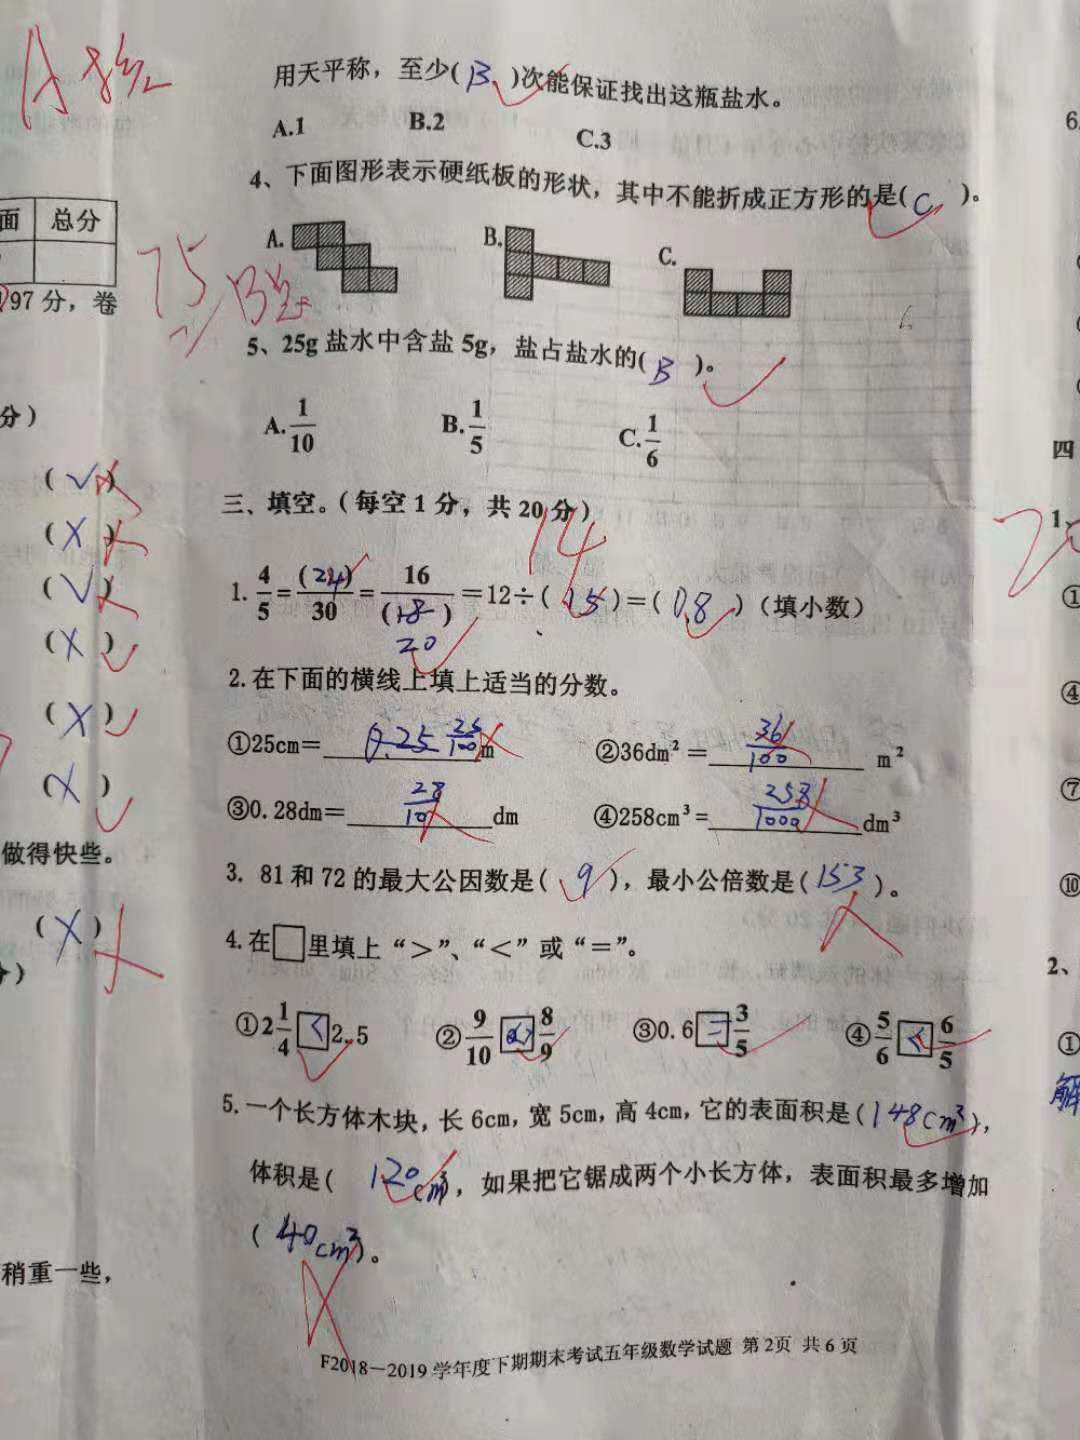 A卷
用天平称，至少( B )次能保证找出这瓶盐水。
A.1 B.2 C.3
4、下面图形表示硬纸板的形状，其中不能折成正方形的是( C )。
A. B. C.
面 总分
97分，卷
75
B卷
5、25g盐水中含盐5g，盐占盐水的( B )。
A. 1/10 B. 1/5 C. 1/6
分）
( √ )
( × )
( √ )
( × )
( × )
( × )
做得快些。
( × )
稍重一些，
三、填空。（每空1分，共20分）
14
1. 4/5=(24)/30=16/(18)=12÷( 15 )=( 0.8 )（填小数）
20
2.在下面的横线上填上适当的分数。
①25cm= 0.25 25/100 m ②36dm²= 36/100 m²
③0.28dm= 28/10 dm ④258cm³= 258/1000 dm³
3. 81和72的最大公因数是( 9 )，最小公倍数是( 153 )。
4.在□里填上“>”、“<”或“=”。
①2 1/4 < 2.5 ② 9/10 > 8/9 ③0.6 = 3/5 ④ 5/6 < 6/5
5.一个长方体木块，长6cm，宽5cm，高4cm，它的表面积是(148cm²)，
体积是( 120cm³)，如果把它锯成两个小长方体，表面积最多增加
( 40cm²)。
F2018—2019学年度下期期末考试五年级数学试题 第2页 共6页
四
1、
①
④
⑦
⑩
2、
①
解